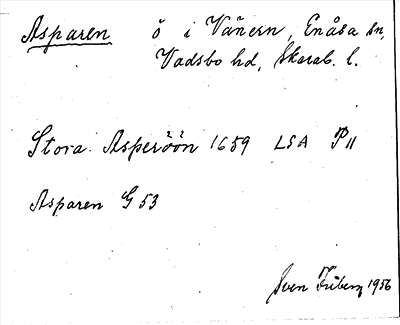 Asparen ö i Vänern, Enåsa sn,
Vadsbo hd, Skarab. l.
Stora Asperöön 1659 LSA P 11
Asparen G 53
Sven Friberg 1956